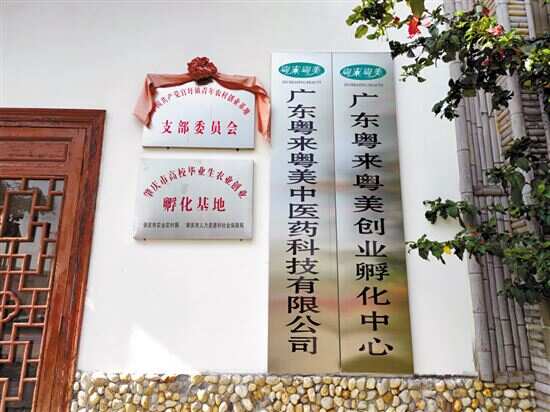 共产党官圩镇青年农村创业基地
支部委员会
肇庆市高校毕业生农业创业
孵化基地
肇庆市农业农村局 肇庆市人力资源和社会保障局
粤来粤美
广东粤来粤美中医药科技有限公司
粤来粤美
广东粤来粤美创业孵化中心